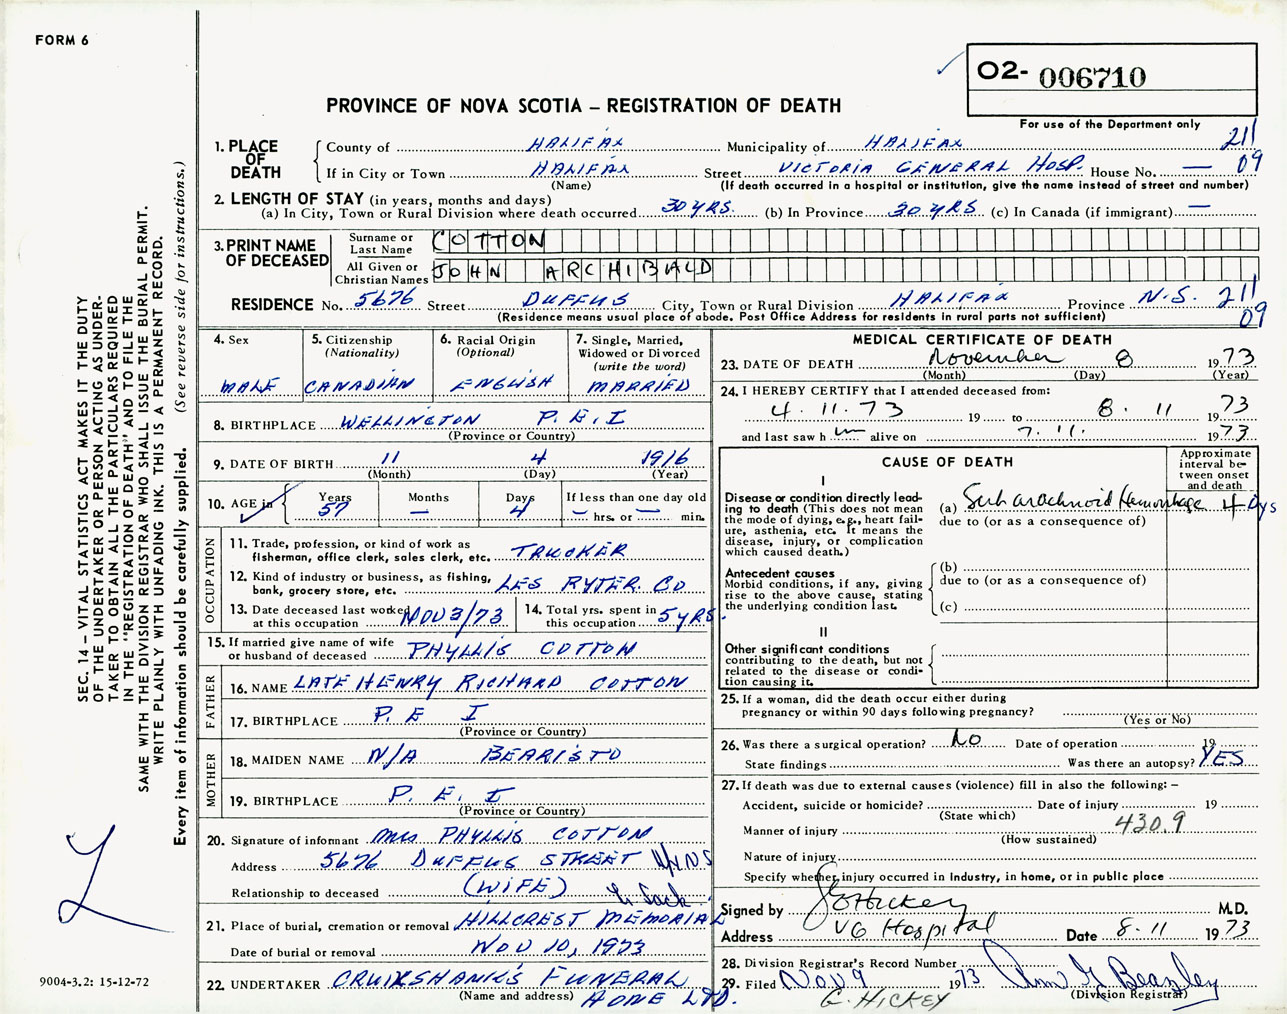 FORM 6
O2- 006710
PROVINCE OF NOVA SCOTIA – REGISTRATION OF DEATH
For use of the Department only
211
09
1. PLACE OF DEATH
County of HALIFAX Municipality of HALIFAX
If in City or Town HALIFAX Street VICTORIA GENERAL HOSP. House No. —
(Name) (If death occurred in a hospital or institution, give the name instead of street and number)
2. LENGTH OF STAY (in years, months and days)
(a) In City, Town or Rural Division where death occurred 30 YRS. (b) In Province 30 YRS (c) In Canada (if immigrant) —
3. PRINT NAME OF DECEASED
Surname or Last Name COTTON
All Given or Christian Names JOHN ARCHIBALD
RESIDENCE No. 5676 Street DUFFUS City, Town or Rural Division HALIFAX Province N.S. 211
09
(Residence means usual place of abode. Post Office Address for residents in rural parts not sufficient)
4. Sex
MALE
5. Citizenship (Nationality)
CANADIAN
6. Racial Origin (Optional)
ENGLISH
7. Single, Married, Widowed or Divorced (write the word)
MARRIED
8. BIRTHPLACE WELLINGTON P.E.I
(Province or Country)
9. DATE OF BIRTH 11 4 1916
(Month) (Day) (Year)
10. AGE in Years 57 Months — Days 4 If less than one day old — hrs. or — min.
OCCUPATION
11. Trade, profession, or kind of work as fisherman, office clerk, sales clerk, etc. TRUCKER
12. Kind of industry or business, as fishing, bank, grocery store, etc. LES RYTER. CO
13. Date deceased last worked at this occupation NOV 3/73
14. Total yrs. spent in this occupation 5 YRS.
15. If married give name of wife or husband of deceased PHYLLIS COTTON
FATHER
16. NAME LATE HENRY RICHARD COTTON
17. BIRTHPLACE P.E I
(Province or Country)
MOTHER
18. MAIDEN NAME N/A BEARISTO
19. BIRTHPLACE P.E.I
(Province or Country)
20. Signature of informant Mrs PHYLLIS COTTON
Address 5676 DUFFUS STREET Hfx NS
Relationship to deceased (WIFE)
21. Place of burial, cremation or removal HILLCREST MEMORIAL
Date of burial or removal NOV 10, 1973
22. UNDERTAKER CRUIKSHANK'S FUNERAL
(Name and address) HOME LTD.
MEDICAL CERTIFICATE OF DEATH
23. DATE OF DEATH November 8 1973
(Month) (Day) (Year)
24. I HEREBY CERTIFY that I attended deceased from:
4.11.73 19 to 8.11 1973
and last saw h im alive on 7.11. 1973
CAUSE OF DEATH
Approximate interval between onset and death
I
Disease or condition directly leading to death (This does not mean the mode of dying, e.g., heart failure, asthenia, etc. It means the disease, injury, or complication which caused death.)
(a) Subarachnoid Hemorrhage 4 Days
due to (or as a consequence of)
Antecedent causes
Morbid conditions, if any, giving rise to the above cause, stating the underlying condition last.
(b)
due to (or as a consequence of)
(c)
II
Other significant conditions
contributing to the death, but not related to the disease or condition causing it.
25. If a woman, did the death occur either during pregnancy or within 90 days following pregnancy?
(Yes or No)
26. Was there a surgical operation? No Date of operation 19
State findings Was there an autopsy? YES
27. If death was due to external causes (violence) fill in also the following: –
Accident, suicide or homicide? Date of injury 19
(State which) 430.9
Manner of injury
(How sustained)
Nature of injury
Specify whether injury occurred in Industry, in home, or in public place
Signed by G Hickey M.D.
Address VG Hospital Date 8.11 1973
28. Division Registrar's Record Number
29. Filed Nov 9 1973 Ann G Beazley
G. HICKEY (Division Registrar)
SEC. 14 – VITAL STATISTICS ACT MAKES IT THE DUTY
OF THE UNDERTAKER OR PERSON ACTING AS UNDER-
TAKER TO OBTAIN ALL THE PARTICULARS REQUIRED
IN THE "REGISTRATION OF DEATH" AND TO FILE THE
SAME WITH THE DIVISION REGISTRAR WHO SHALL ISSUE THE BURIAL PERMIT.
WRITE PLAINLY WITH UNFADING INK. THIS IS A PERMANENT RECORD.
Every item of information should be carefully supplied. (See reverse side for instructions.)
9004-3.2: 15-12-72